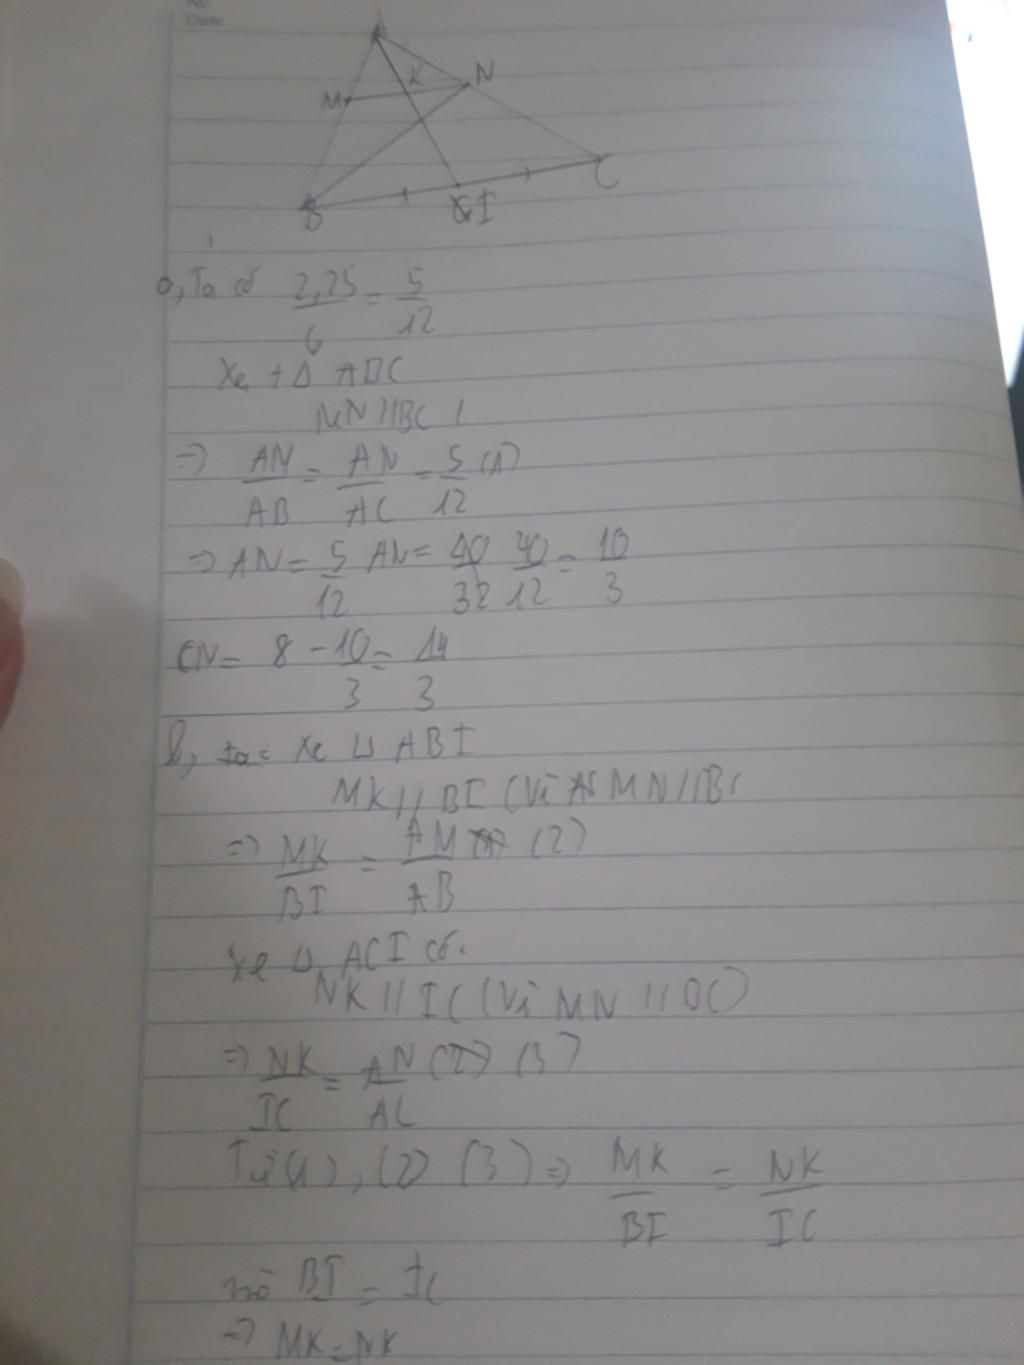 Date
A
K
N
M
B
I
C
a, Ta có 2,25/6 = 5/12
Xe + Δ ABC
MN // BC
=> AM/AB = AN/AC = 5/12 (1)
=> AN = 5/12 AN = 40/12 = 10/3
CN = 8 - 10/3 = 14/3
b, xe Δ ABI
MK // BI (Vì MN // BC
=> MK/BI = AM/AB (2)
xe Δ ACI có:
NK // IC (Vì MN // BC)
=> NK/IC = AN/AC (3)
Từ (1), (2) (3) => MK/BI = NK/IC
mà BI = IC
=> MK = NK